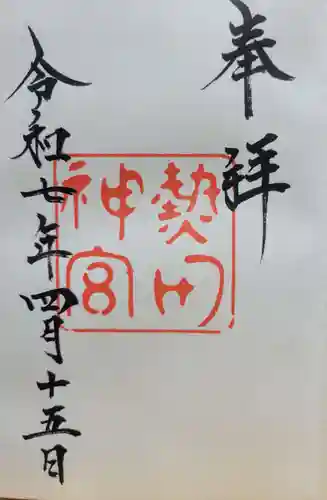 奉拝
熱田
神宮
令和七年四月十五日